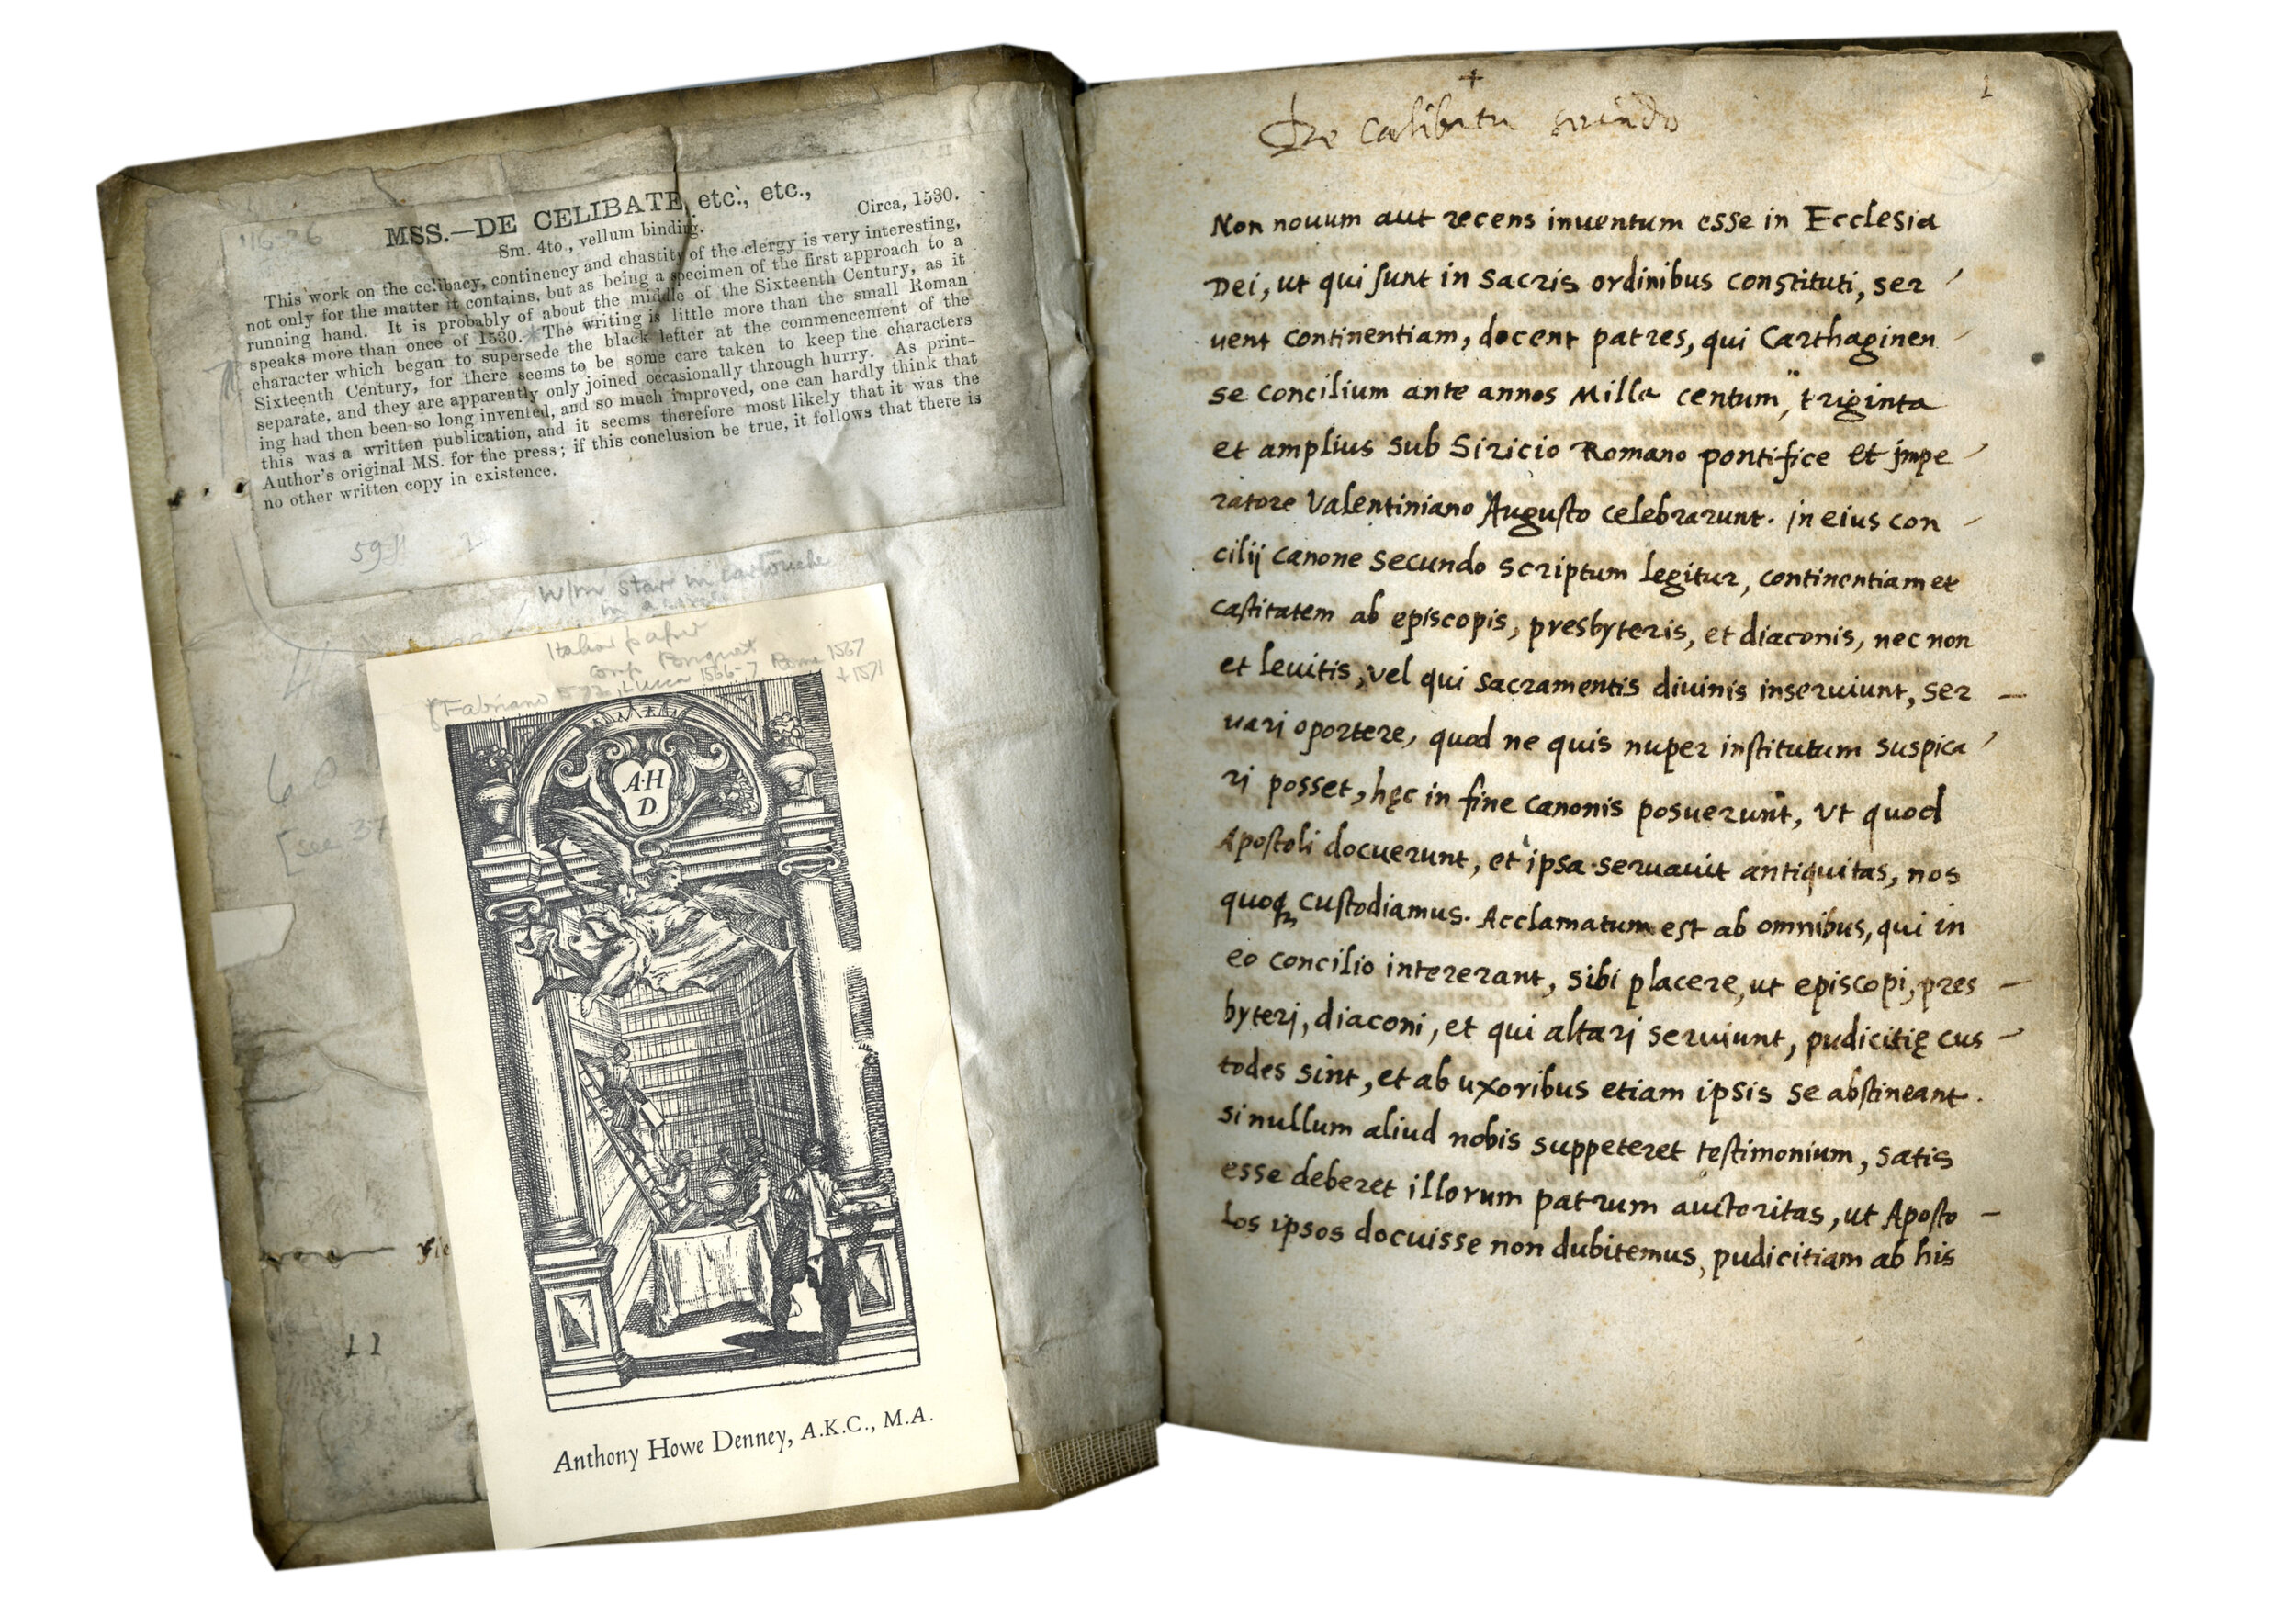 MSS.—DE CELIBATE, etc., etc.,
Circa, 1530.
Sm. 4to., vellum binding.
This work on the celibacy, continency and chastity of the clergy is very interesting,
not only for the matter it contains, but as being a specimen of the first approach to a
running hand. It is probably of about the middle of the Sixteenth Century, as it
speaks more than once of 1530. The writing is little more than the small Roman
character which began to supersede the black letter at the commencement of the
Sixteenth Century, for there seems to be some care taken to keep the characters
separate, and they are apparently only joined occasionally through hurry. As print-
ing had then been so long invented, and so much improved, one can hardly think that
this was a written publication, and it seems therefore most likely that it was the
Author's original MS. for the press; if this conclusion be true, it follows that there is
no other written copy in existence.
w/m star in cartouche
in a
Italian paper
comp. Briquet
Fabriano Lucca 1566-7 Rome 1567
+ 1571
60
[see 37
A·H
D
11
Anthony Howe Denney, A.K.C., M.A.
1
+
De Calibatu
Non nouum aut recens inuentum esse in Ecclesia
Dei, ut qui sunt in sacris ordinibus constituti, ser
uent continentiam, docent patres, qui Carthaginen
se concilium ante annos Mille centum, triginta
et amplius sub Siricio Romano pontifice et impe
ratore Valentiniano Augusto celebrarunt. in eius con
cilij canone secundo scriptum legitur, continentiam et
castitatem ab episcopis, presbyteris, et diaconis, nec non
et leuitis, vel qui sacramentis diuinis inseruiunt, ser
uari oportere, quod ne quis nuper institutum suspica
ri posset, hęc in fine canonis posuerunt, Vt quod
Apostoli docuerunt, et ipsa seruauit antiquitas, nos
quoq; custodiamus. Acclamatum est ab omnibus, qui in
eo concilio intererant, sibi placere, ut episcopi, pres
byteri, diaconi, et qui altari seruiunt, pudicitię cus
todes sint, et ab uxoribus etiam ipsis se abstineant.
si nullum aliud nobis suppeteret testimonium, satis
esse deberet illorum patrum auctoritas, ut Aposto
los ipsos docuisse non dubitemus, pudicitiam ab his